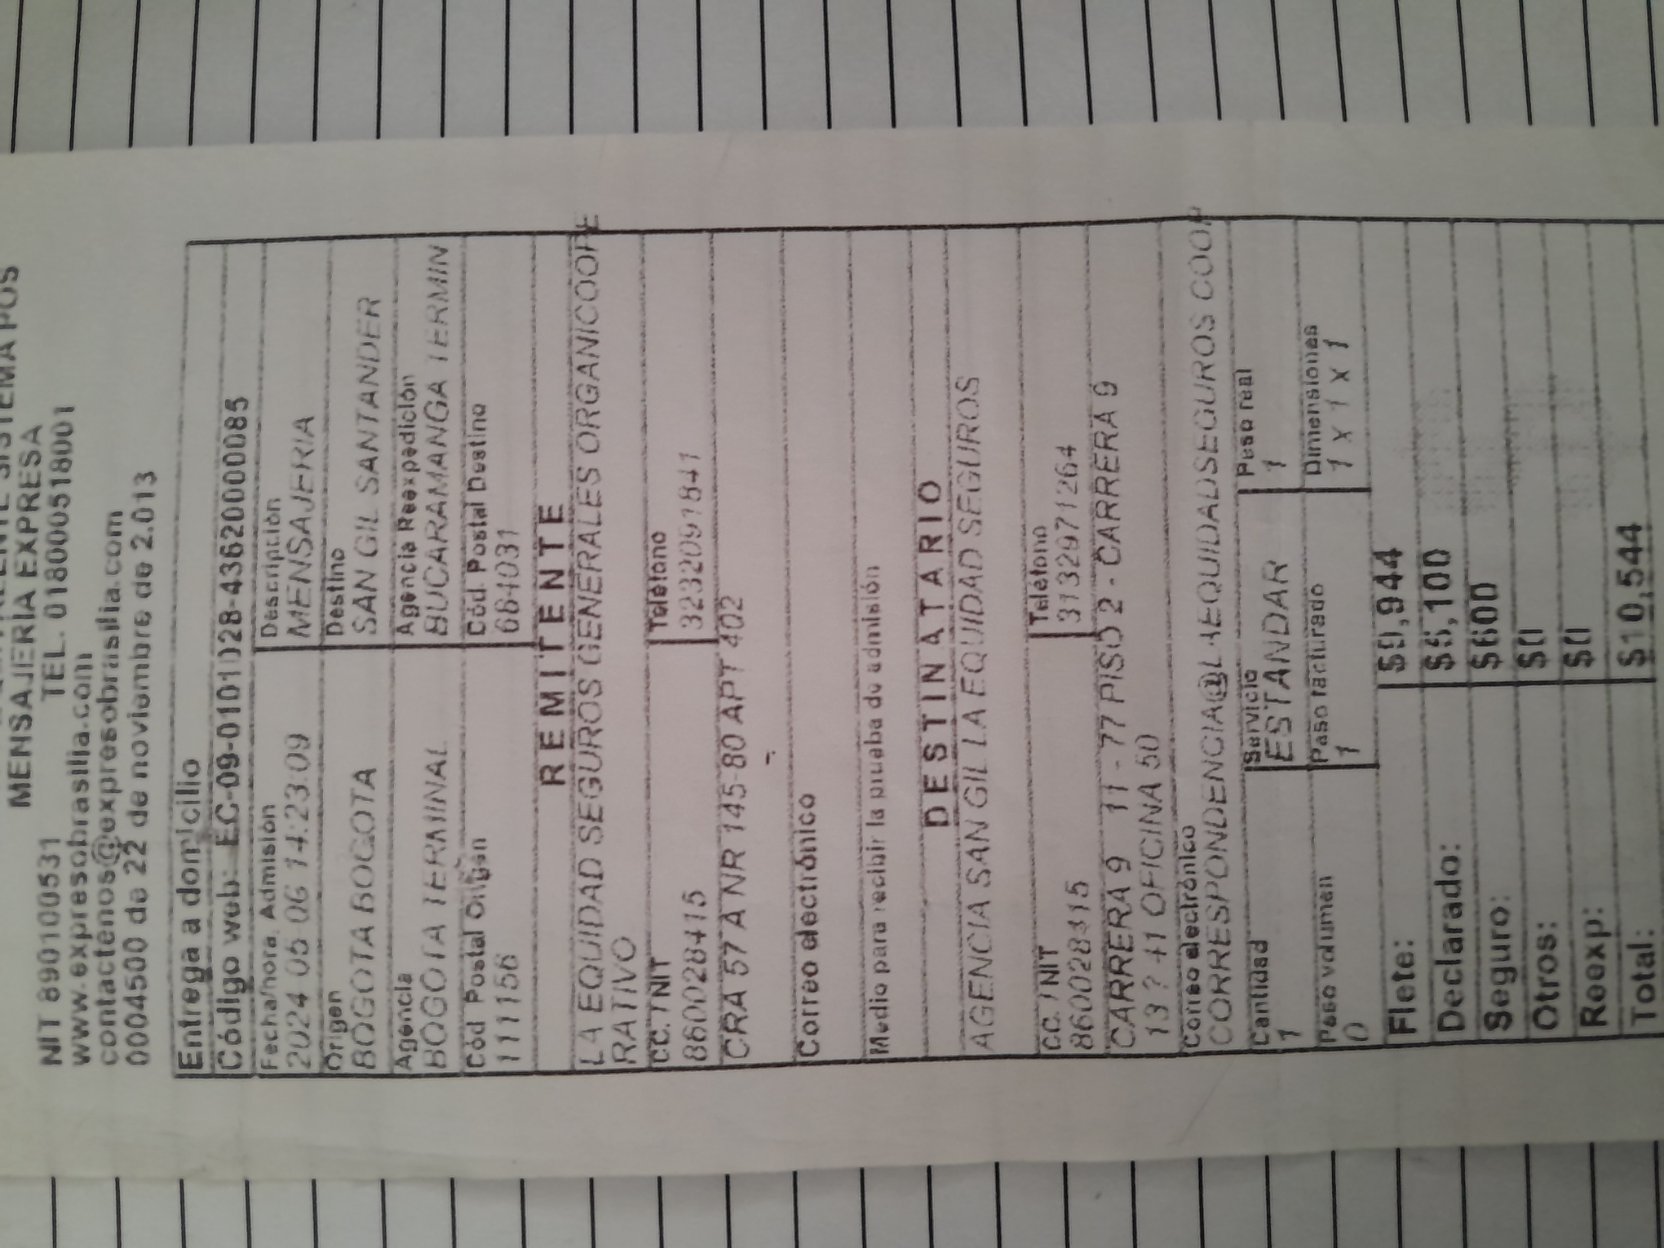 SISTEMA POS
MENSAJERÍA EXPRESA
NIT 890100531 TEL. 018000518001
www.expresobrasilia.com
contactenos@expresobrasilia.com
0004500 de 22 de noviembre de 2.013
Entrega a domicilio
Código web: EC-09-0101028-4362000085
Fecha/hora. Admisión Descripción
2024 05 06 14:23:09 MENSAJERIA
Origen Destino
BOGOTA BOGOTA SAN GIL SANTANDER
Agencia Agencia Reexpedición
BOGOTA TERMINAL BUCARAMANGA TERMIN
Cód Postal Origen Cód. Postal Destino
111156 684031
REMITENTE
LA EQUIDAD SEGUROS GENERALES ORGANICOOPE
RATIVO
CC. / NIT Teléfono
860028415 3232091841
CRA 57 A NR 145-80 APT 402
Correo electrónico
Medio para recibir la prueba de admisión
DESTINATARIO
AGENCIA SAN GIL LA EQUIDAD SEGUROS
C.C. / NIT Teléfono
8600028415 3132971264
CARRERA 9 11 - 77 PISO 2 - CARRERA 9
13 ? 41 OFICINA 50
Correo electrónico
CORRESPONDENCIA@LAEQUIDADSEGUROS COOP
Cantidad Servicio Peso real
1 ESTANDAR 1
Peso volumen Peso facturado Dimensiones
0 1 1 x 1 x 1
Flete: $9,944
Declarado: $5,100
Seguro: $600
Otros: $0
Reexp: $0
Total: $10,544